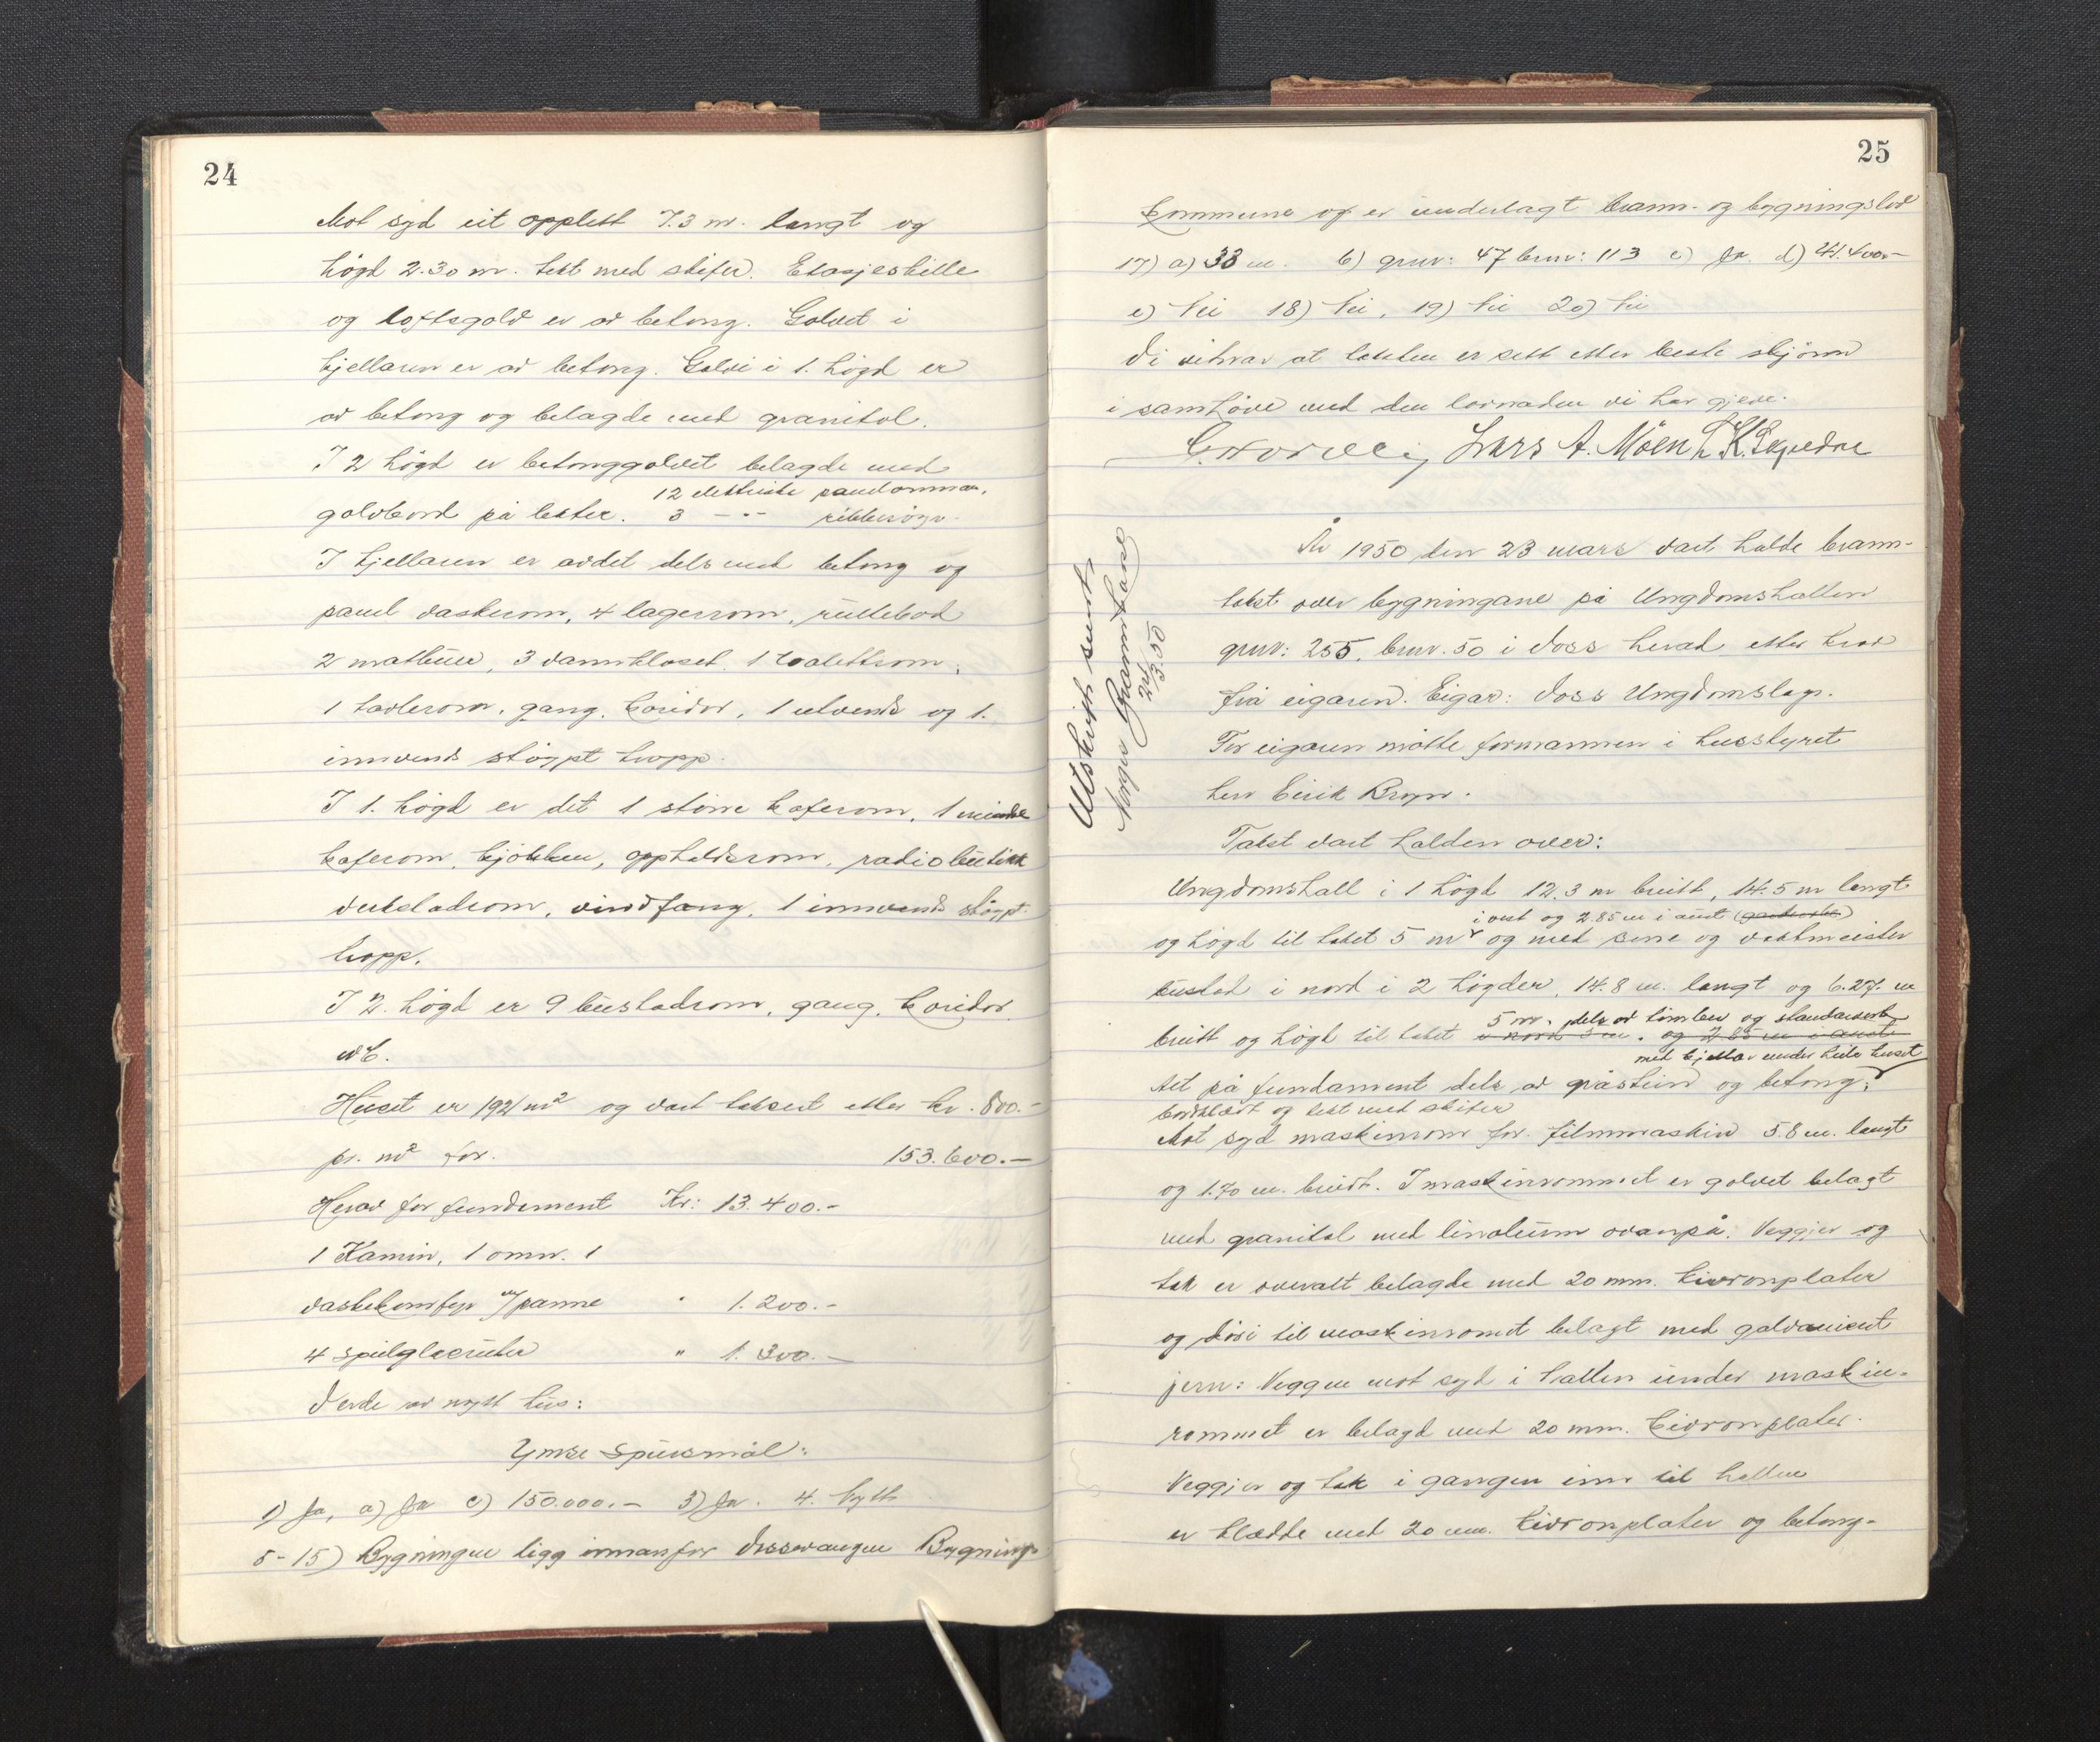 24
Mot syd eit opplett 7.3 m. langt og
högd 2.30 m. tekt med skifer. Etasjeskille
og loftsgolv er av betong. Golvet i
kjellaren er av betong. Golvi i 1. högd er
av betong og belagde med granitol.
I 2 högd er betonggolvet belagde med
12 elektriske panelomnar,
golvbord på lekter. 3 -"- ribberöyr.
I kjellaren er avdet dels med betong og
panel vaskerom, 4 lagerrom, rullebod
2 matbuer, 3 vannkloset, 1 toalettrom,
1 tavlerom, gang, Coridor, 1 utvends og 1.
innvends stöypt tropp.
I 1. högd er det 1 större kaferom, 1 mindre
kaferom, kjökken, oppholdsrom, radiobutikk
verkstadrom, vindfang, 1 innvends stöypt
tropp.
I 2. högd er 9 bustadrom, gang, Coridor.
WC.
Huset er 192 m² og vart taksert etter kr. 800.-
pr. m² for. 153.600.-
Herav for fundament Kr: 13.400.-
1 Kamin, 1 omn. 1
vaskekomfyr m/panne " 1.200.-
4 speilglasruter " 1.300.-
Verde av nytt hus:
Ymse Spursmål:
1) Ja, a) Ja c) 150.000.- 3) Ja. 4. Nytt
5-15) Bygningen ligg innanfor Vossevangen Bygnings
25
Kommune og er underlagt brann- og bygningslov
17) a) 33 m. b) gnr: 47 bnr: 113 c) Ja. d) 41.400.-
e) Nei 18) Nei, 19) Nei 20) Nei
Vi vitnar at taksten er sett etter beste skjönn
i samhöve med den lovnaden vi har gjeve.
Lars A. Möen
Utskrift sendt
Norges Brannkasse
24/3.50
År 1950 den 23 mars vart halde brann-
takst over bygningane på Ungdomshallen
gnr: 255, bnr. 50 i Voss herad etter krav
frå eigaren. Eigar: Voss Ungdomslag.
For eigaren mötte formannen i husstyret
herr Eirik Bryn.
Takst vart halden over:
Ungdomshall i 1 högd 12.3 m breitt, 14.5 m langt
i vest og 2.85 m i aust
og högd til taket 5 m og med scene og vaktmeister
bustad i nord i 2 högder, 14.8 m. langt og 6.27. m
5 m, dels av timber og standarverk
breitt og högd til taket i nord 5 m. og 2.85 m i aust
med kjellar under heile huset
Att på fundament dels av gråstein og betong,
bordklædt og tekt med skifer
Mot syd maskinrom for filmmaskin 5.8 m. langt
og 1.70 m. breidt. I maskinrommet er golvet belagt
med granitol med linoleum ovanpå. Veggjer og
tak er overalt belagde med 20 mm. tivronplater
og döri til maskinromet belagt med galvanisert
jern: Veggen mot syd i hallen under maskin-
rommet er belagd med 20 mm. tivronplater.
Veggjer og tak i gangen inn til hallen
er klædde med 20 mm. tivronplater og betong-